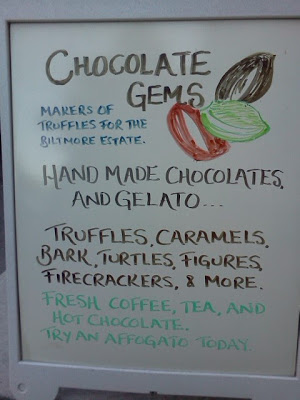 CHOCOLATE
GEMS
MAKERS OF
TRUFFLES FOR THE
BILTMORE ESTATE.
HAND MADE CHOCOLATES,
AND GELATO...
TRUFFLES, CARAMELS,
BARK, TURTLES, FIGURES,
FIRECRACKERS, & MORE.
FRESH COFFEE, TEA, AND
HOT CHOCOLATE.
TRY AN AFFOGATO TODAY.